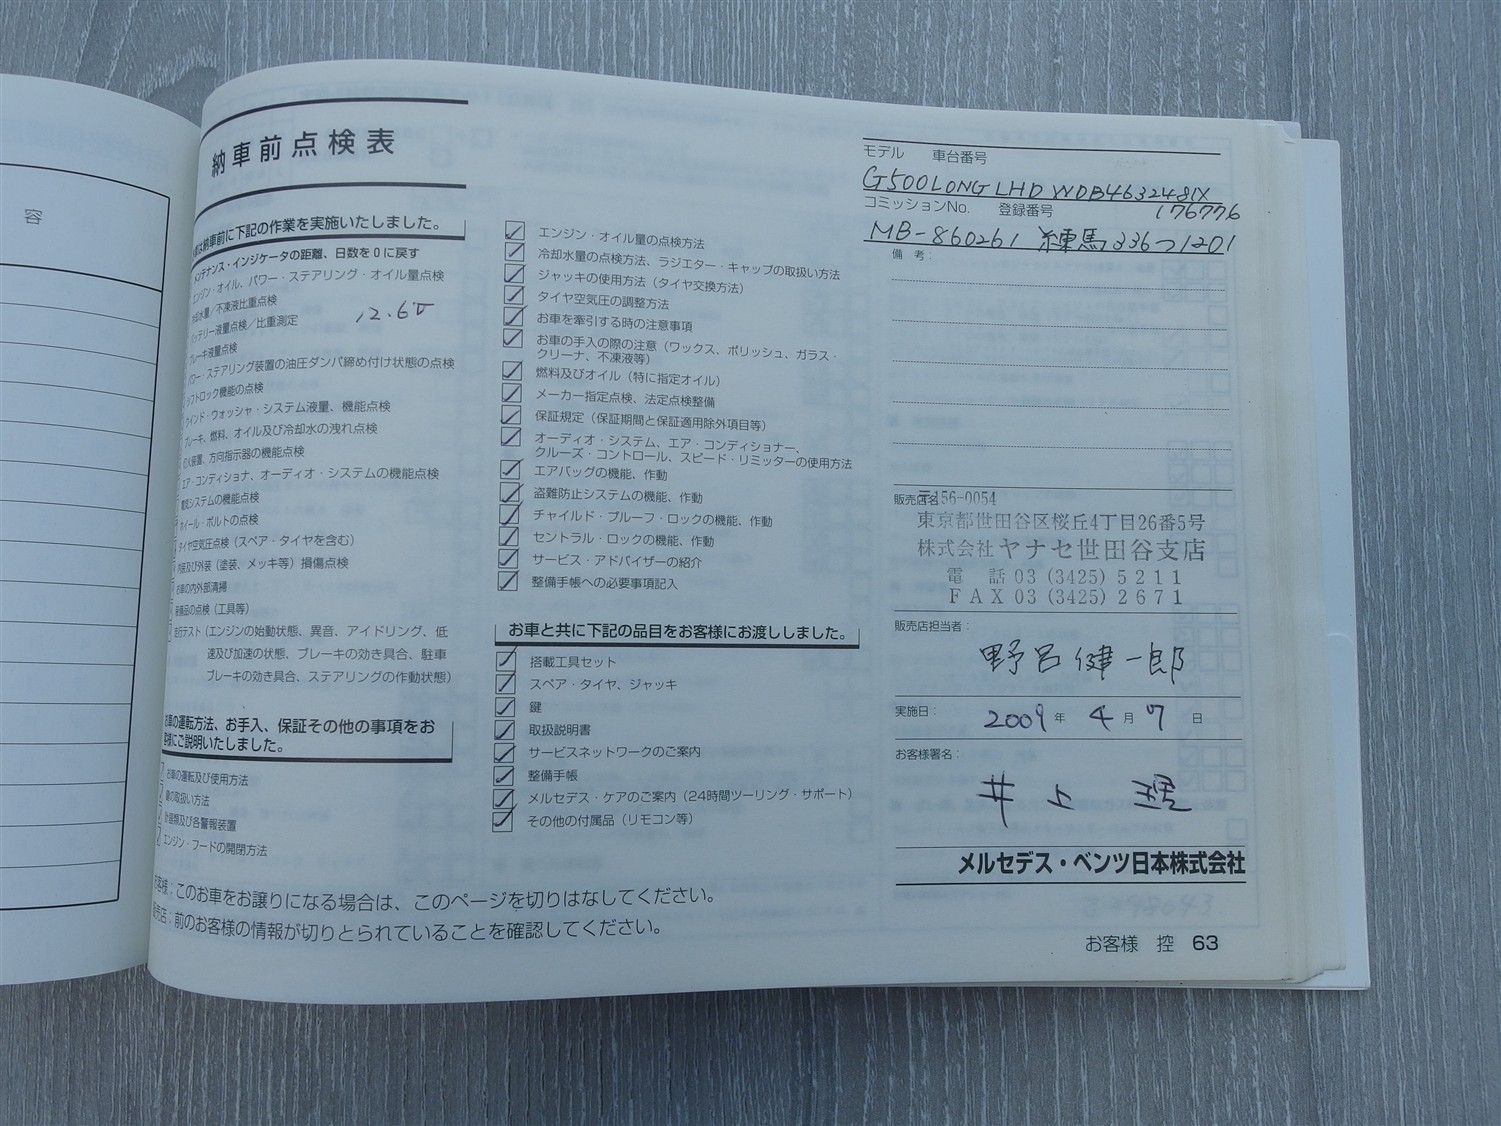 容
納車前点検表
は納車前に下記の作業を実施いたしました。
メンテナンス・インジケータの距離、日数を0に戻す
エンジン・オイル、パワー・ステアリング・オイル量点検
冷却水量/不凍液比重点検
バッテリー液量点検/比重測定
12.65
ブレーキ液量点検
パワー・ステアリング装置の油圧ダンパ締め付け状態の点検
シフトロック機能の点検
ウインド・ウォッシャ・システム液量、機能点検
ブレーキ、燃料、オイル及び冷却水の洩れ点検
灯火装置、方向指示器の機能点検
エア・コンディショナ、オーディオ・システムの機能点検
電気システムの機能点検
ホイール・ボルトの点検
タイヤ空気圧点検(スペア・タイヤを含む)
内装及び外装(塗装、メッキ等)損傷点検
お車の内外部清掃
装備品の点検(工具等)
走行テスト(エンジンの始動状態、異音、アイドリング、低
速及び加速の状態、ブレーキの効き具合、駐車
ブレーキの効き具合、ステアリングの作動状態)
お車の運転方法、お手入、保証その他の事項をお
客様にご説明いたしました。
お車の運転及び使用方法
鍵の取扱い方法
計器類及び各警報装置
エンジン・フードの開閉方法
エンジン・オイル量の点検方法
冷却水量の点検方法、ラジエター・キャップの取扱い方法
ジャッキの使用方法(タイヤ交換方法)
タイヤ空気圧の調整方法
お車を牽引する時の注意事項
お車の手入の際の注意(ワックス、ポリッシュ、ガラス・
クリーナ、不凍液等)
燃料及びオイル(特に指定オイル)
メーカー指定点検、法定点検整備
保証規定(保証期間と保証適用除外項目等)
オーディオ・システム、エア・コンディショナー、
クルーズ・コントロール、スピード・リミッターの使用方法
エアバッグの機能、作動
盗難防止システムの機能、作動
チャイルド・プルーフ・ロックの機能、作動
セントラル・ロックの機能、作動
サービス・アドバイザーの紹介
整備手帳への必要事項記入
お車と共に下記の品目をお客様にお渡ししました。
搭載工具セット
スペア・タイヤ、ジャッキ
鍵
取扱説明書
サービスネットワークのご案内
整備手帳
メルセデス・ケアのご案内(24時間ツーリング・サポート)
その他の付属品(リモコン等)
モデル 車台番号
G500LONG LHD WDB4632481X
176776
コミッションNo. 登録番号
MB-860261 練馬336つ1201
備考:
販売店名:
〒156-0054
東京都世田谷区桜丘4丁目26番5号
株式会社ヤナセ世田谷支店
電 話 03 (3425) 5211
FAX 03 (3425) 2671
販売店担当者:
野呂健一郎
実施日: 2009年 4月 7日
お客様署名:
井上 理
メルセデス・ベンツ日本株式会社
お客様:このお車をお譲りになる場合は、このページを切りはなしてください。
販売店:前のお客様の情報が切りとられていることを確認してください。
お客様 控 63